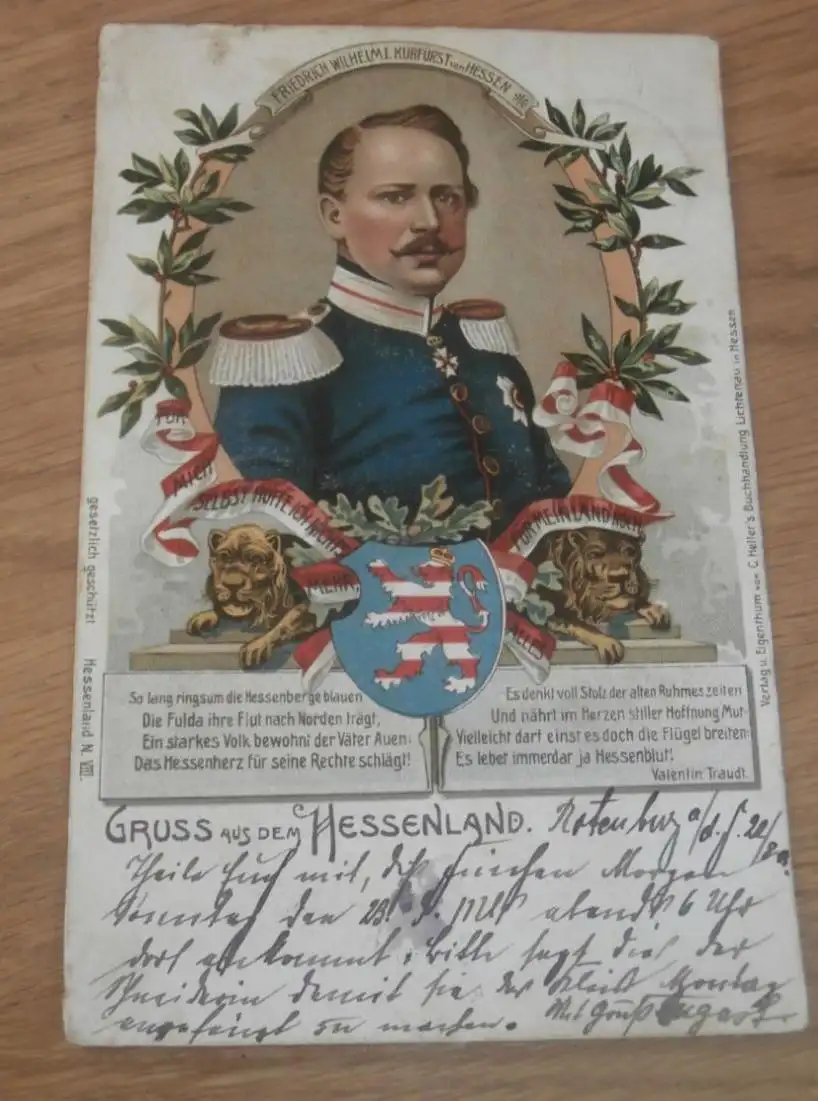 FRIEDRICH WILHELM I. KURFÜRST von HESSEN
FÜR
MICH
SELBST HOFFE ICH NICHTS
MEHR,
FÜR MEIN LAND NOCH
ALLES
gesetzlich geschützt Hessenland N. VIII.
Verlag u. Eigenthum von C. Heller's Buchhandlung Lichtenau in Hessen
So lang ringsum die Hessenberge blauen
Die Fulda ihre Flut nach Norden trägt,
Ein starkes Volk bewohnt der Väter Auen:
Das Hessenherz für seine Rechte schlägt!
Es denkt voll Stolz der alten Ruhmeszeiten
Und nährt im Herzen stiller Hoffnung Mut-
Vielleicht darf einst es doch die Flügel breiten:
Es lebet immerdar ja Hessenblut!
Valentin Traudt.
GRUSS AUS DEM HESSENLAND.
Rotenburg a/d. F.
Theile Euch mit, daß morgen
Sonntag den 23. d. Mts abends 6 Uhr
dort ankommt, bitte sagt dies der
Schneiderin damit sie das Kleid Montag
anfängt zu machen.
Mit Gruß